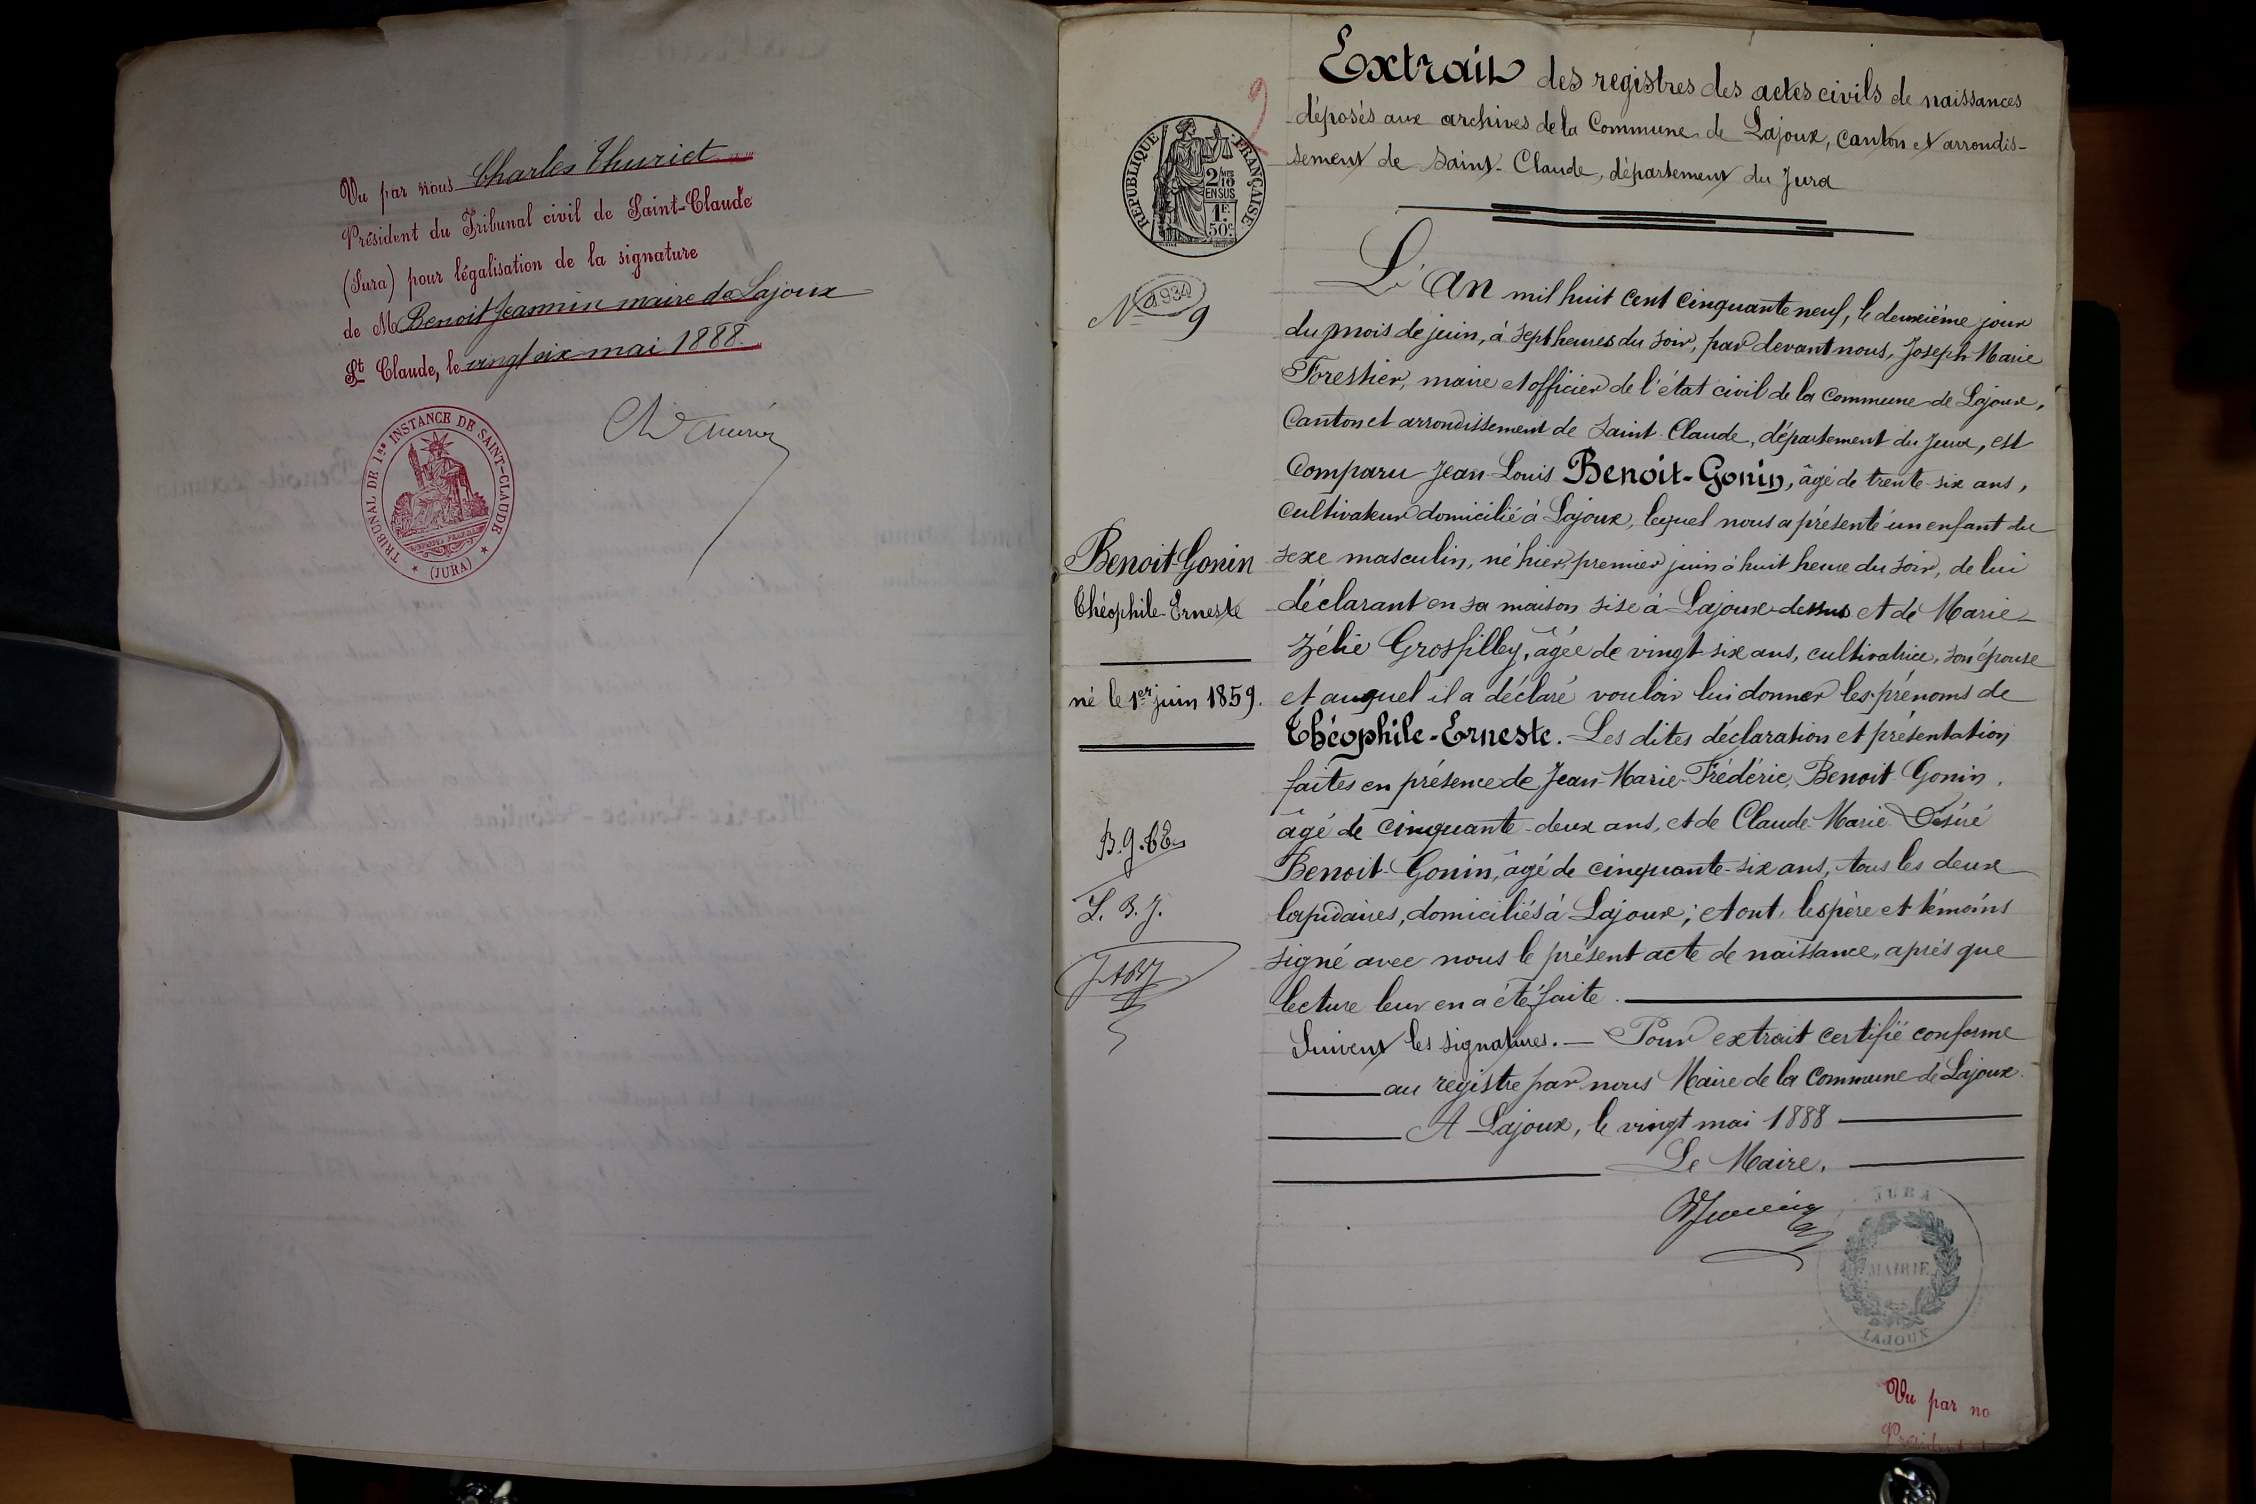 Vu par nous Charles Thuriet
Président du Tribunal civil de Saint-Claude
(Jura) pour légalisation de la signature
de M Benoit Jeannin maire de Lajoux
St Claude, le vingt six mai 1888.
TRIBUNAL DE 1re INSTANCE DE SAINT-CLAUDE
(JURA)
Extrait des registres des actes civils de naissances
déposés aux archives de la Commune de Lajoux, canton et arrondis-
sement de Saint-Claude, département du Jura
RÉPUBLIQUE FRANÇAISE
2/10 EN SUS
1F 50c
No 9
934
L'an mil huit cent cinquante neuf, le deuxième jour
du mois de juin, à sept heures du soir, par devant nous, Joseph-Marie
Forestier, maire et officier de l'état civil de la commune de Lajoux,
Canton et arrondissement de Saint-Claude, département du Jura, est
Comparu Jean-Louis Benoit-Gonin, âgé de trente-six ans,
cultivateur domicilié à Lajoux, lequel nous a présenté un enfant du
sexe masculin, né hier, premier juin à huit heure du soir, de lui
déclarant en sa maison sise à Lajoux-dessus et de Marie-
Zélie Grosfilley, âgée de vingt-six ans, cultivatrice, son épouse
et auquel il a déclaré vouloir lui donner les prénoms de
Théophile-Erneste. Les dites déclaration et présentation
faites en présence de Jean-Marie-Frédéric Benoit-Gonin,
âgé de cinquante-deux ans, et de Claude-Marie-Désiré
Benoit-Gonin, âgé de cinquante-six ans, tous les deux
lapidaires, domiciliés à Lajoux; et ont, les père et témoins
signé avec nous le présent acte de naissance, après que
lecture leur en a été faite.
Suivent les signatures. — Pour extrait certifié conforme
au registre par nous Maire de la Commune de Lajoux.
A Lajoux, le vingt mai 1888
Le Maire.
Benoit-Gonin
Théophile-Erneste
né le 1er juin 1859.
B. G. T. E.
L. B. J.
JURA
MAIRIE
LAJOUX
Vu par no
Président